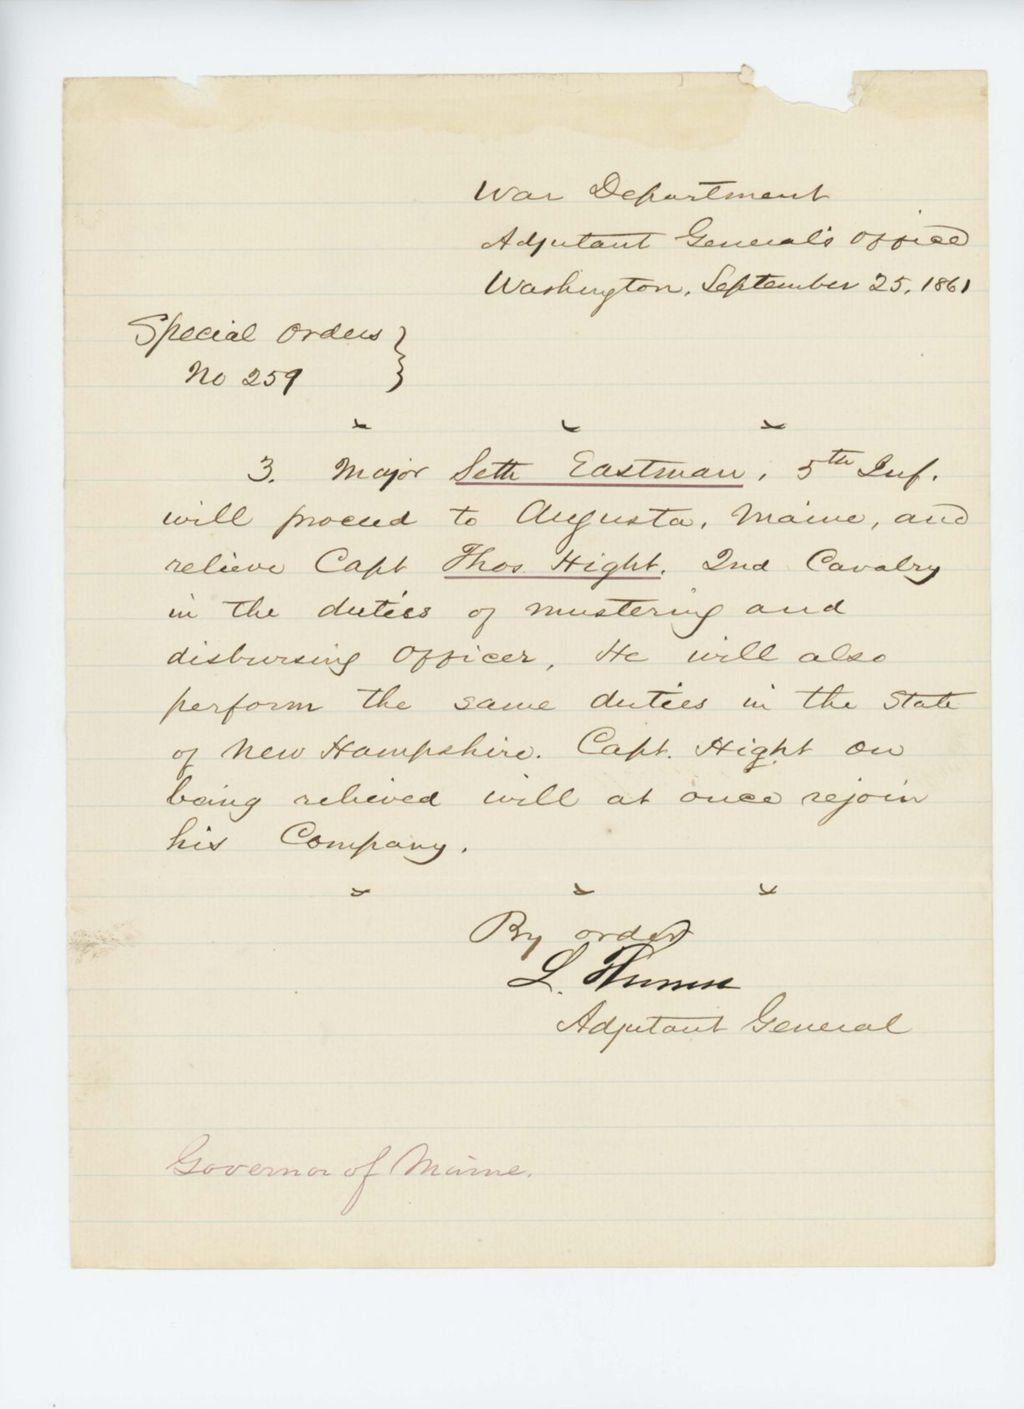 War Department
Adjutant General's Office
Washington, September 25, 1861
Special Orders
No 259
" " "
3. Major Seth Eastman, 5th Inf.
will proceed to Augusta, Maine, and
relieve Capt Thos Hight, 2nd Cavalry
in the duties of mustering and
disbursing Officer, He will also
perform the same duties in the State
of New Hampshire. Capt. Hight on
being relieved will at once rejoin
his Company.
" " "
By order
L. Thomas
Adjutant General
Governor of Maine.